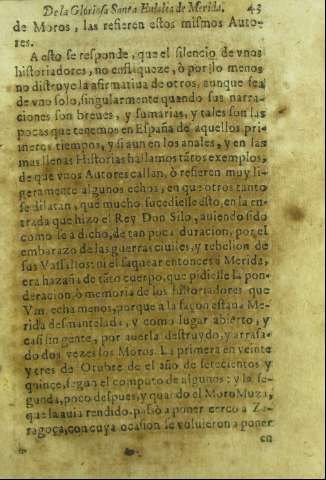 De la Gloriosa Santa Eulalia de Merida. 43
de Moros, las refieren estos mismos Auto-
res.
A esto se responde, que el silencio de vnos
historiadores, no enflaqueze, ò por lo menos
no distruye la afirmatiua de otros, aunque sea
de vno solo, singularmente quando sus narra-
ciones son breues, y sumarias, y tales son las
pocas que tenemos en España de aquellos pri-
meros tiempos, y si aun en los anales, y en las
mas llenas Historias hallamos tãtos exemplos,
de que vnos Autores callan, ò refieren muy li-
geramente algunos echos, en que otros tanto
se dilatan, que mucho sucediesse esto, en la en-
trada que hizo el Rey Don Silo, auiendo sido
como se à dicho, de tan poca duracion, por el
embarazo de las guerras ciuiles, y rebelion de
sus Vassallos: ni el saquear entonces à Merida,
era hazaña de tãto cuerpo, que pidiesse la pon-
deracion, ò memoria de los historiadores que
Vm. echa menos, porque a la saçon estaua Me-
rida desmantelada, y como lugar abierto, y
casi sin gente, por auerla destruydo, y arrasa-
do dos vezes los Moros. La primera en veinte
y tres de Otubre de el año de setecientos y
quince, segun el computo de algunos: y la se-
gunda, poco despues, y quãdo el Moro Muza,
que la auia rendido, passò a poner cerco a Za-
ragoça, con cuya ocasion se voluieron a poner
en